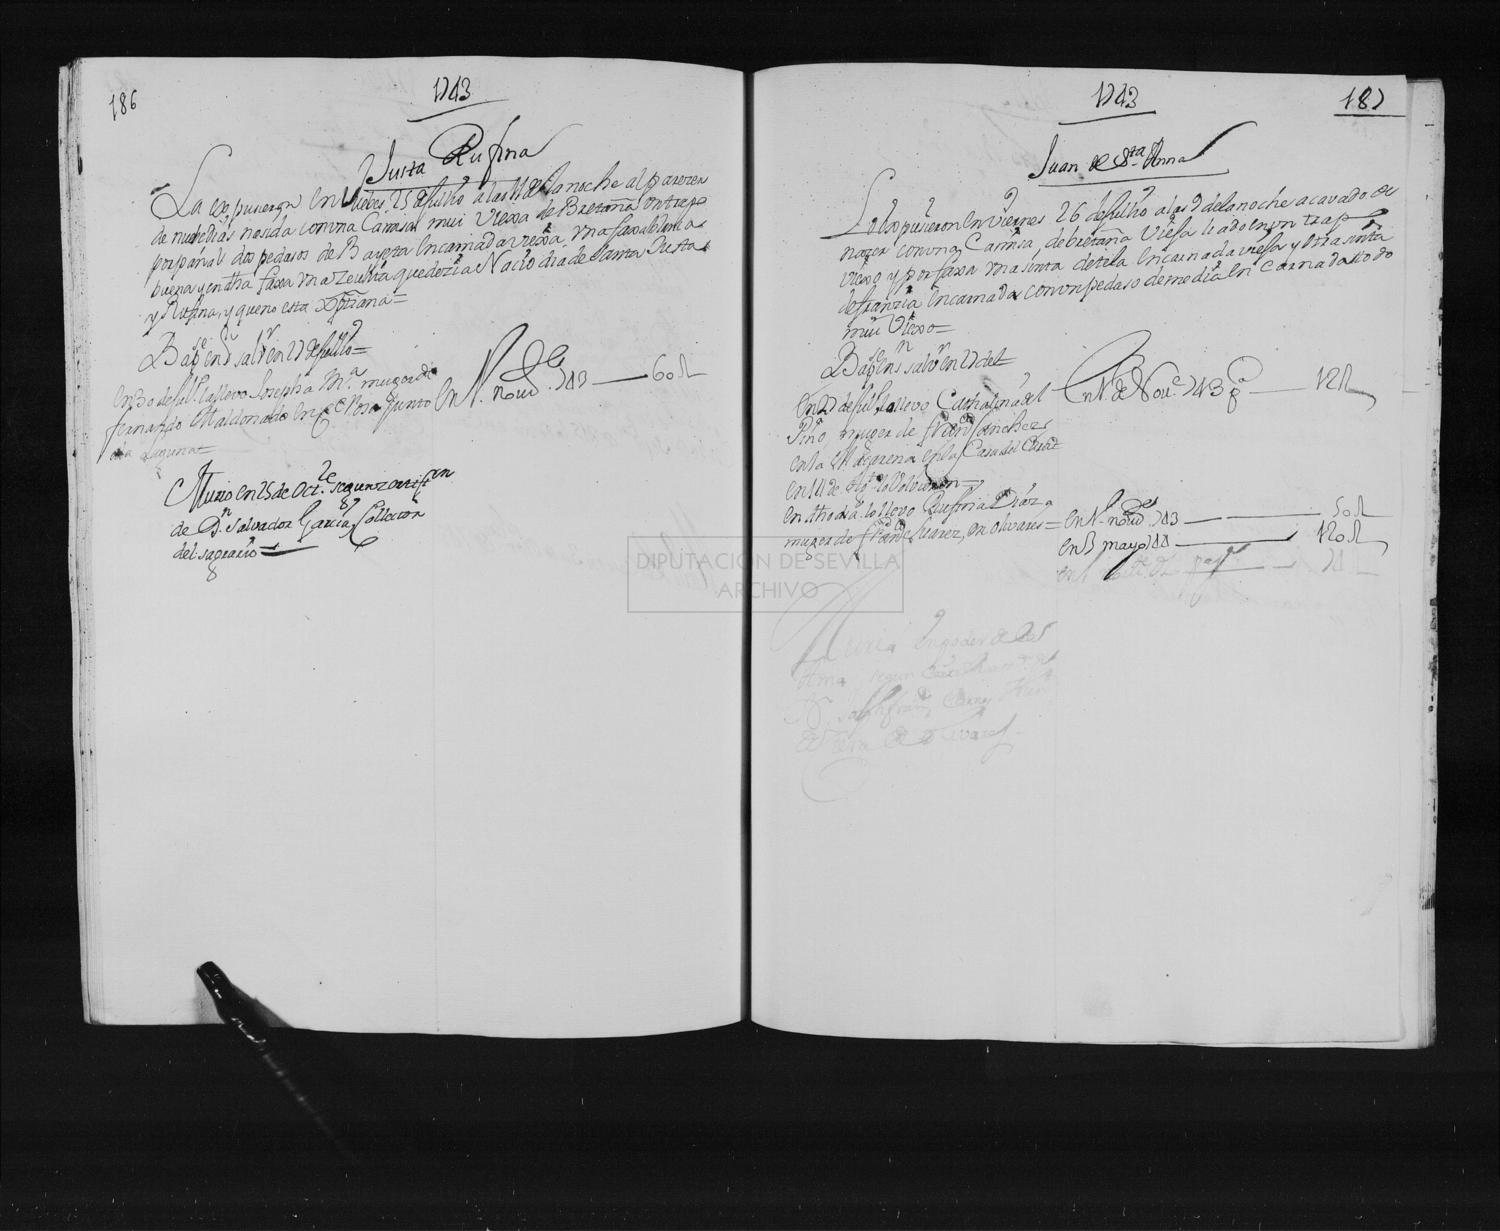 186
1743
Justa Rufina
La expusieron en Juebes 25 de Julio a las 11 de la noche al parezer
de nuebe dias nasida con una Camisa mui viexa de Bretaña un trap
por pañal dos pedasos de Bayeta encarnada viexa, una faxa blanca
buena y en dha faxa una zedulita que dezia Nacio dia de Santa Justa
y Rufina, y que no esta xptiana=
Bapse en Sn Salvr en 27 de Julio=
en 30 de Jul. la llevo Josepha Ma. muger de
fernando Maldonado en Ce Rosa junto
a la Laguna=
En 1. novDe. 743 — 60 R
Murio en 25 de Octe. segun zertifon
de Dn Salvador Garcia Collector
del sagrario=
1743
187
Juan de Sta Anna
Lo expusieron en Viernes 26 de Julio a las 9 de la noche acavado de
nazer con una Camisa de bretaña viexa liado en un trap
viexo y por faxa una sinta de tela encarnada viexa y otra sinta
de franzia encarnada con un pedaso de media encarnada todo
mui viexo=
Bapse en Sn Salvr en 27 del=
en 27 de Jul. lo llevo Catharina del
Pino muger de Franco Sanchez
en la Macarena en la Casa del
en 14 de Agto lo volvieron=
en dho dia lo llevo Eufemia Diaz
muger de Franco Suarez, en olivares=
en 1. de Nove. 743 — 12 R
en 1. novDe. 743 — 50 R
en 3 mayo 744 — 120 R
Murio en poder de su
Ama segun
de Olivares
DIPUTACIÓN DE SEVILLA
ARCHIVO